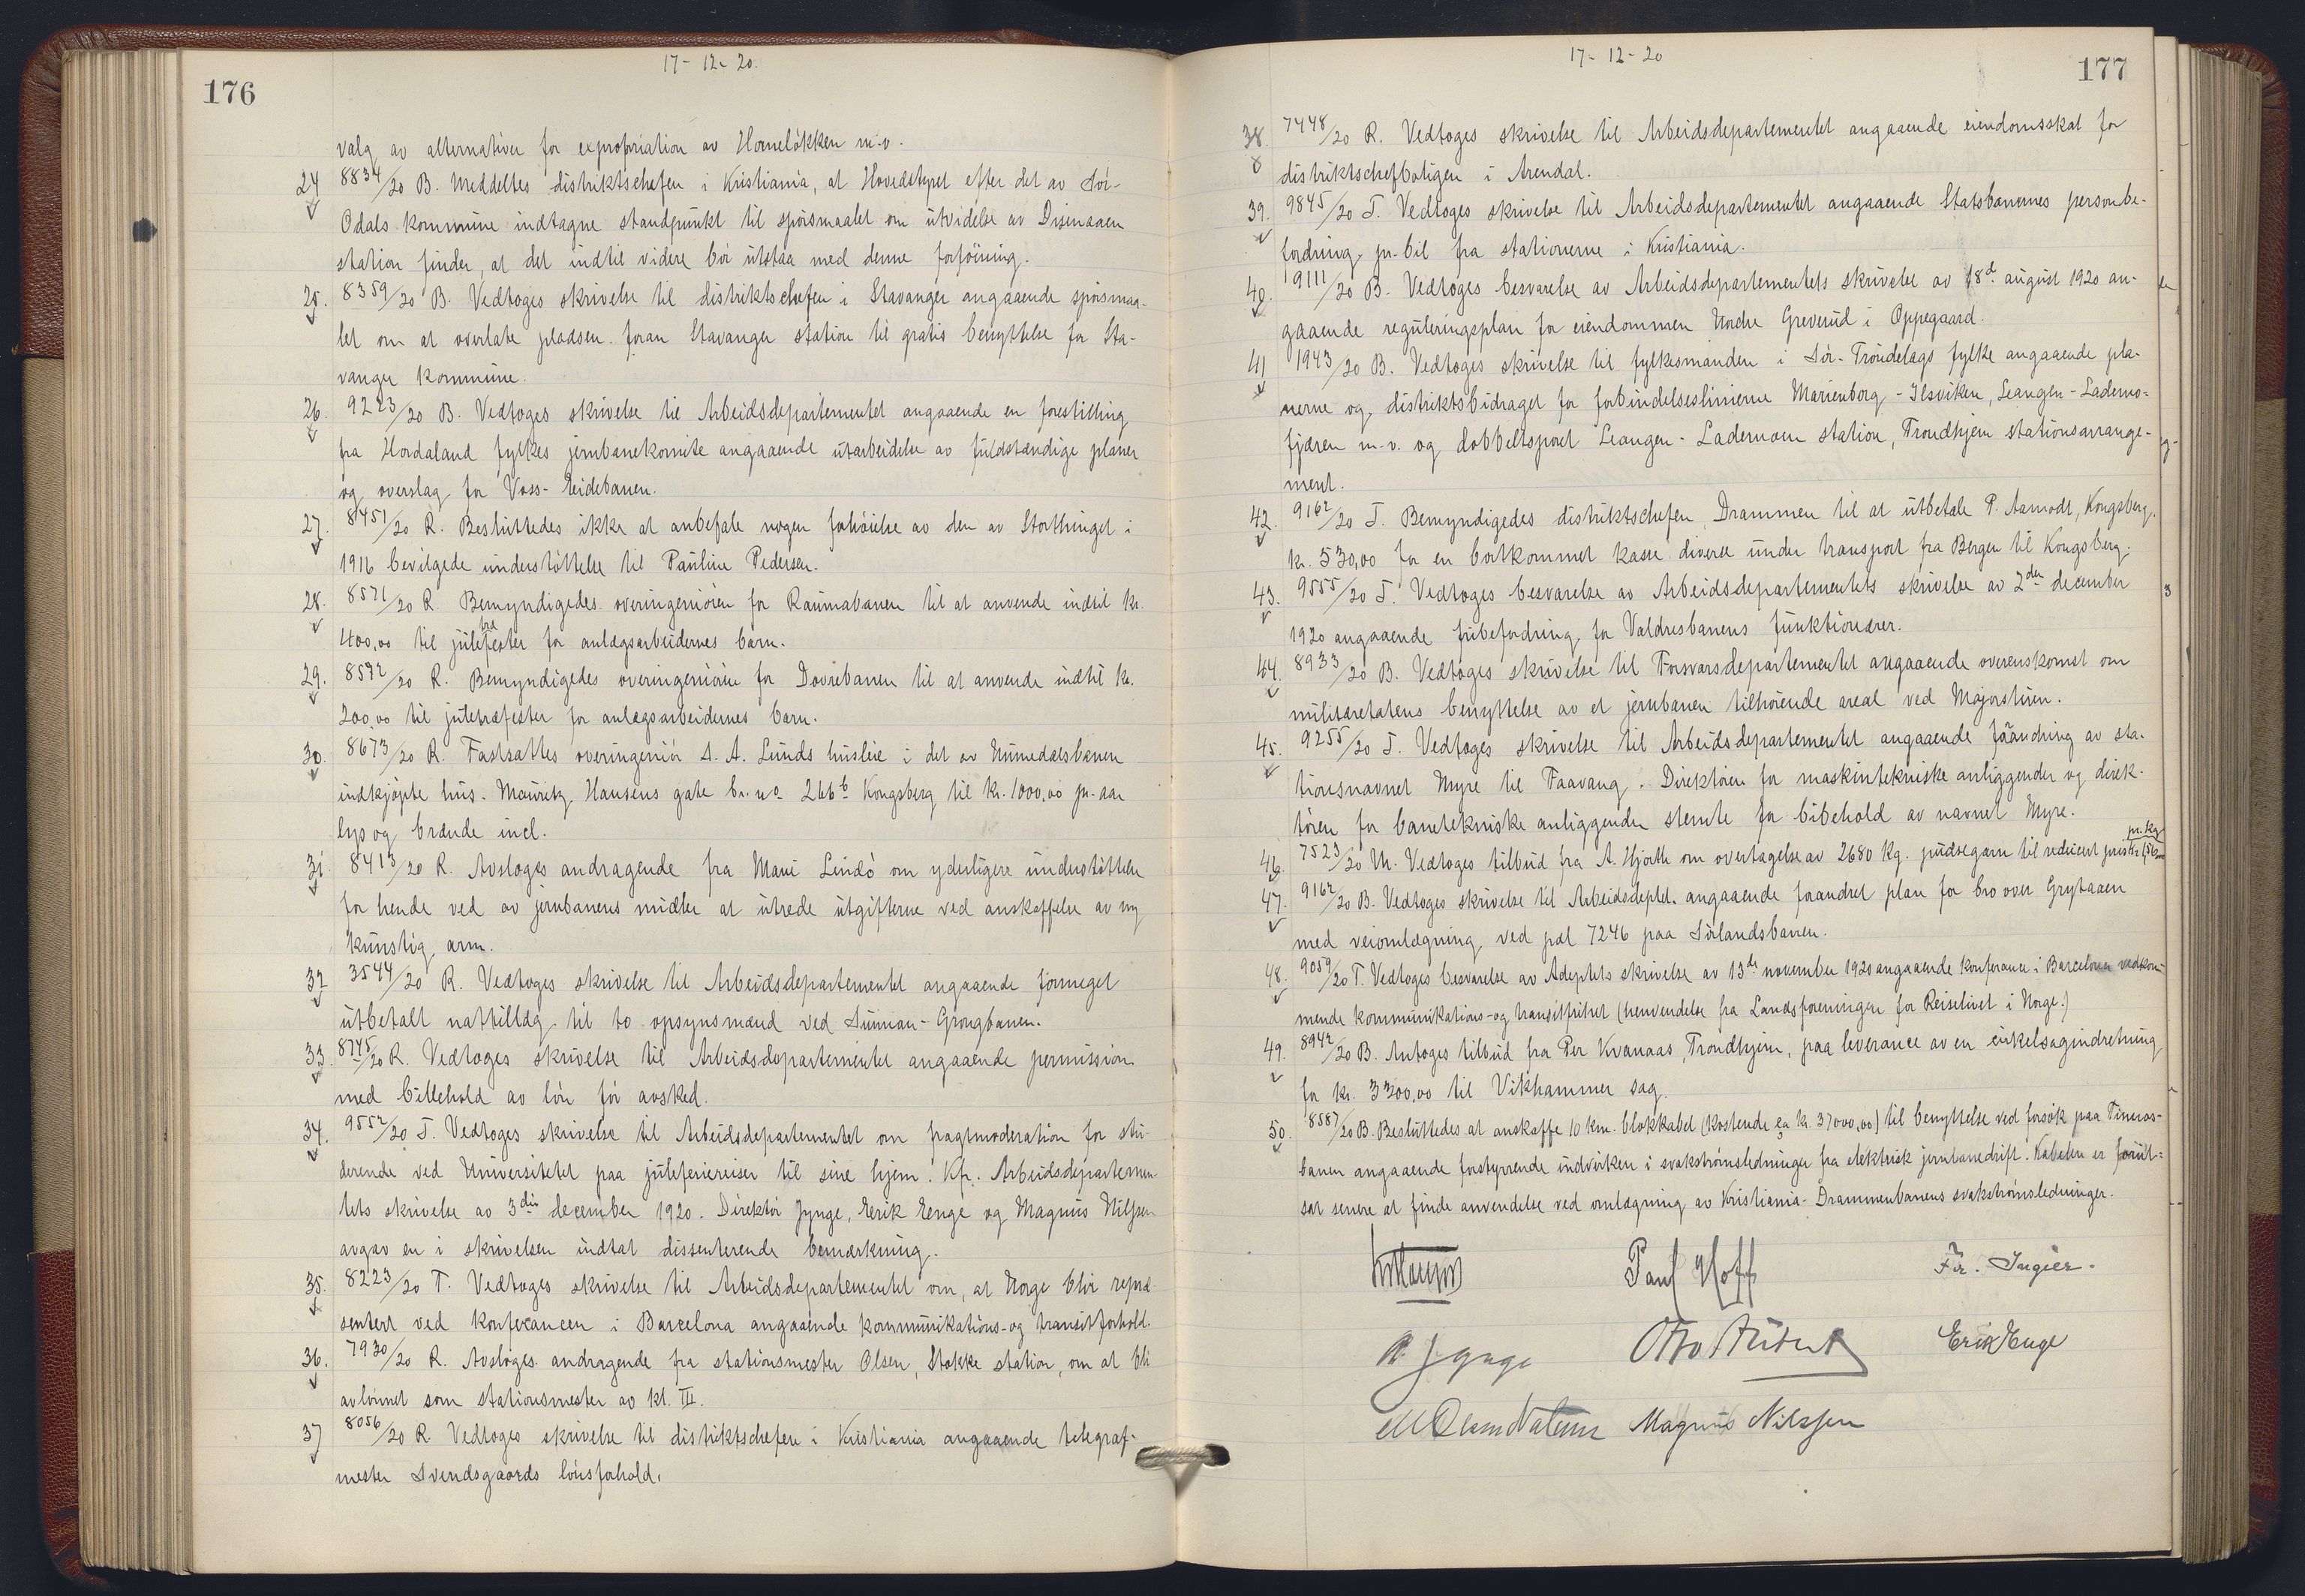 17-12-20.
176
valg av alternativer for expropriation av Horneløkken m.v.
24 8834/20 B. Meddeltes distriktschefen i Kristiania, at Hovedstyret efter det av Sör-
Odals kommune indtagne standpunkt til spörsmaalet om utvidelse av Disenaaen
station finder, at det indtil videre bör utstaa med denne forföining.
25. 8359/20 B. Vedtoges skrivelse til distriktschefen i Stavanger angaaende spörsmaa-
let om at overlate pladsen foran Stavanger station til gratis benyttelse for Sta-
vanger kommune.
26. 9223/20 B. Vedtoges skrivelse til Arbeidsdepartementet angaaende en forestilling
fra Hordaland fylkes jernbanekomite angaaende utarbeidelse av fuldstændige planer
og overslag for Voss-Eidebanen.
27. 8451/20 R. Besluttedes ikke at anbefale nogen forhöielse av den av Storthinget i
1916 bevilgede understöttelse til Pauline Pedersen.
28. 8571/20 R. Bemyndigedes overingeniören for Raumabanen til at anvende indtil kr.
400,00 til juletræfester for anlægsarbeidernes barn.
29. 8592/20 R. Bemyndigedes overingeniören for Dovrebanen til at anvende indtil kr.
200,00 til juletræfester for anlægsarbeidernes barn.
30. 8673/20 R. Fastsattes overingeniör S. A. Lunds husleie i det av Numedalsbanen
indkjøpte hus. Mauritz Hansens gate br. no 266b Kongsberg til kr. 1000,00 pr. aar
lys og brænde incl.
31. 8413/20 R. Avsloges andragende fra Marie Lindö om yderligere understöttelse
for hende ved av jernbanens midler at utrede utgifterne ved anskaffelse av ny
kunstig arm.
32 3544/20 R. Vedtoges skrivelse til Arbeidsdepartementet angaaende formeget
utbetalt nattillæg til to opsynsmænd ved Sunnan-Grongbanen.
33. 8745/20 R. Vedtoges skrivelse til Arbeidsdepartementet angaaende permission
med bibehold av lön för avsked.
34. 9552/20 T. Vedtoges skrivelse til Arbeidsdepartementet om fragtmoderation for stu-
derende ved Universitetet paa juleferiereiser til sine hjem. Kfr. Arbeidsdepartemen-
tets skrivelse av 3die december 1920. Direktör Jynge, Eerik Enge og Magnus Nilssen
avgav en i skrivelsen indtat dissenterende bemærkning.
35. 8223/20 T. Vedtoges skrivelse til Arbeidsdepartementet om, at Norge blir repræ
sentert ved konferancen i Barcelona angaaende kommunikations- og transitforhold.
36. 7930/20 R. Avsloges andragende fra stationsmester Olsen, Stokke station, om at bli
avlönnet som stationsmester av kl. III.
37 8056/20 R Vedtoges skrivelse til distriktschefen i Kristiania angaaende telegraf-
mester Svendsgaards lönsforhold.
17-12-20
177
38. 7448/20 R. Vedtoges skrivelse til Arbeidsdepartementet angaaende eiendomsskat for
distriktschefboligen i Arendal.
39. 9845/20 T. Vedtoges skrivelse til Arbeidsdepartementet angaaende Statsbanernes personbe-
fordring pr. bil fra stationerne i Kristiania.
40. 9111/20 B. Vedtoges besvarelse av Arbeidsdepartementets skrivelse av 18de august 1920 an-
gaaende reguleringsplan for eiendommen Nordre Greverud i Oppegaard.
41 1943/20 B. Vedtoges skrivelse til fylkesmanden i Sör-Tröndelags fylke angaaende pla-
nerne og distriktsbidraget for forbindelseslinierne Marienborg-Ilsviken, Leangen-Ladermo-
fjæren m.v. og dobbeltsporet Leangen-Ladermoen station, Trondhjem stationsarrange-
ment.
42. 9162/20 T. Bemyndigedes distriktschefen, Drammen til at utbetale P. Aamodt, Kongsberg
kr. 530,00 for en bortkommet kasse diverse under transport fra Bergen til Kongsberg.
43. 9555/20 T. Vedtoges besvarelse av Arbeidsdepartementets skrivelse av 2den december
1920 angaaende fribefordring for Valdresbanens funktionærer.
44. 8933/20 B. Vedtoges skrivelse til Forsvarsdepartementet angaaende overenskomst om
militæretatens benyttelse av et jernbanen tilhörende areal ved Majorstuen.
45. 9255/20 T. Vedtoges skrivelse til Arbeidsdepartementet angaaende forandring av sta-
tionsnavnet Myre til Faavang. Direktören for maskintekniske anliggender og direk-
tören for banetekniske anliggender stemte for bibehold av navnet Myre.
46. 7523/20 M. Vedtoges tilbud fra A. Hjorth om overtagelse av 2680 Kg. pudsegarn til reducert pris pr. kg
47. 9162/20 B. Vedtoges skrivelse til Arbeidsdeptet. angaaende forandret plan for bro over Grytaaen
med veiomlægning ved pæl 7246 paa Sörlandsbanen.
48. 9059/20 T. Vedtoges besvarelse av Adeptets skrivelse av 13de november 1920 angaaende konferance i Barcelona vedkom-
mende kommunikations- og transitfrihet (henvendelse fra Landsforeningen for Reiselivet i Norge.)
49. 8942/20 B. Antoges tilbud fra Per Kvanaas, Trondhjem, paa leverance av en cirkelsagindretning
for kr. 3300,00 til Vikhammer sag.
50. 8587/20 B. Besluttedes at anskaffe 10 km. blokkabel (kostende ca kr. 37000,00) til benyttelse ved forsök paa Tinnos-
banen angaaende forstyrrende indvirken i svakströmsledninger fra elektrisk jernbanedrift. Kabelen er forut-
sat senere at finde anvendelse ved omlægning av Kristiania-Drammenbanens svakströmsledninger.
Paul Hoff Fr. Ingier.
Jynge Otto Aubert Erik Enge
M Olsen Nalum Magnus Nilssen